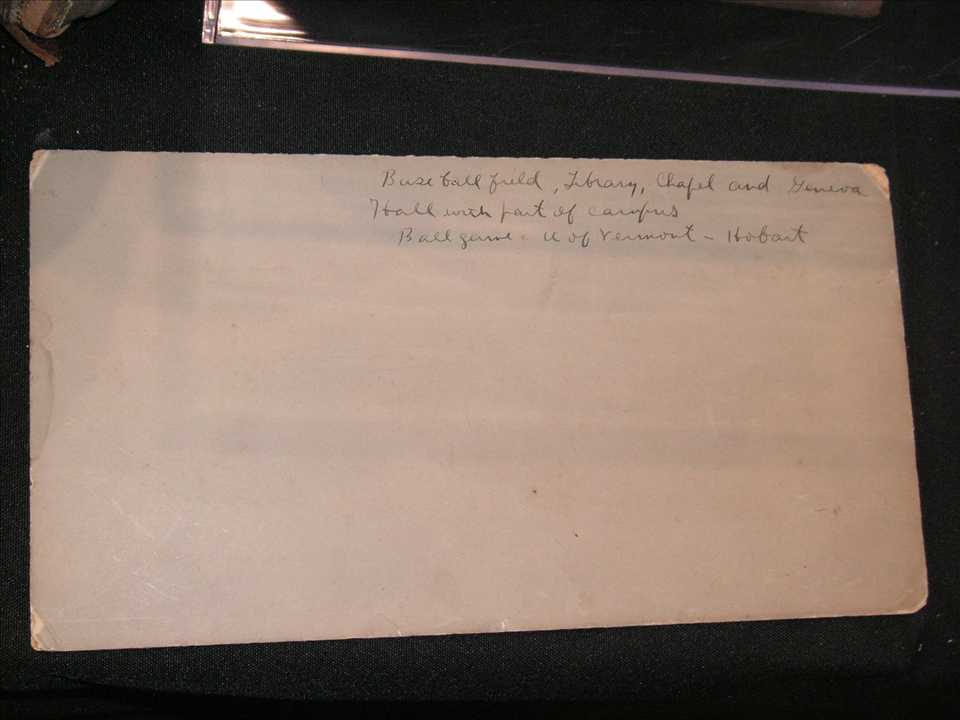 Baseball field, Library, Chapel and Geneva
Hall with part of campus
Ball game - U of Vermont - Hobart